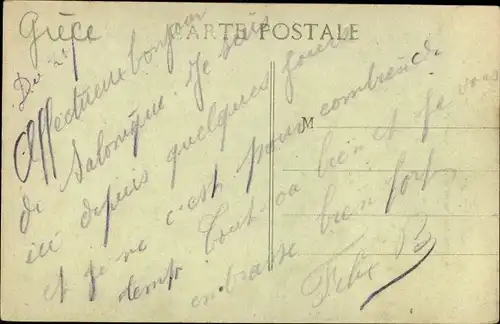 Grèce
CARTE POSTALE
Du
Affectueux bonjour
de Salonique. Je suis
ici depuis quelques jours
et je ne c'est pour combien de
temps Tout va bien et Je vous
embrasse bien fort
Felix B
M